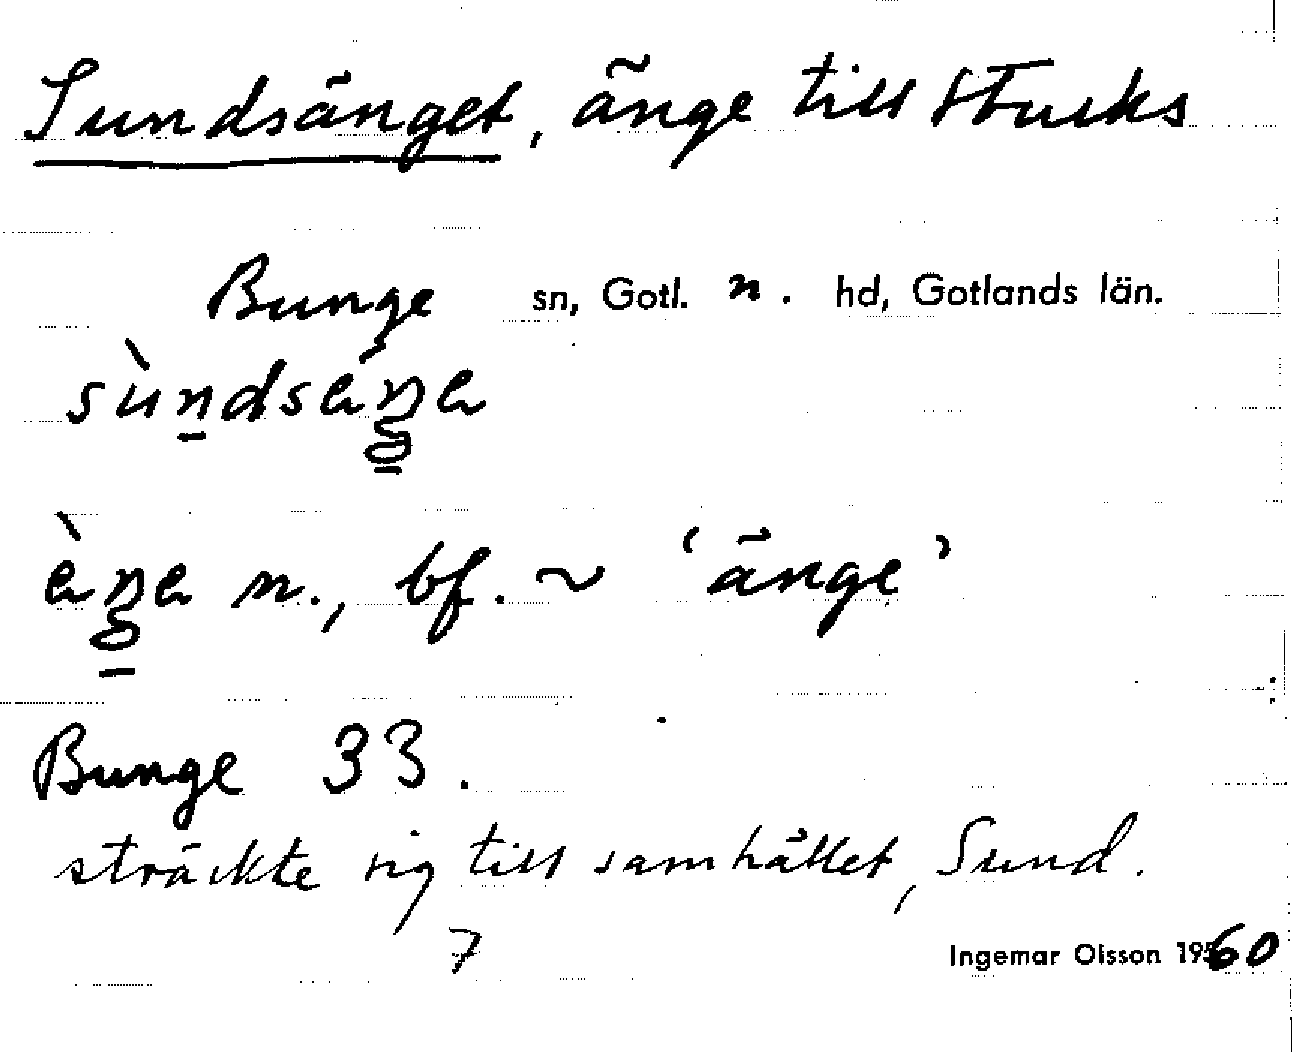 Sundsänget, änge till Stucks
Bunge sn, Gotl. n. hd, Gotlands län.
sùndsäŋe
èŋe n., bf. ~ 'änge'
Bunge 33.
sträckte sig till samhället, Sund.
7
Ingemar Olsson 1960